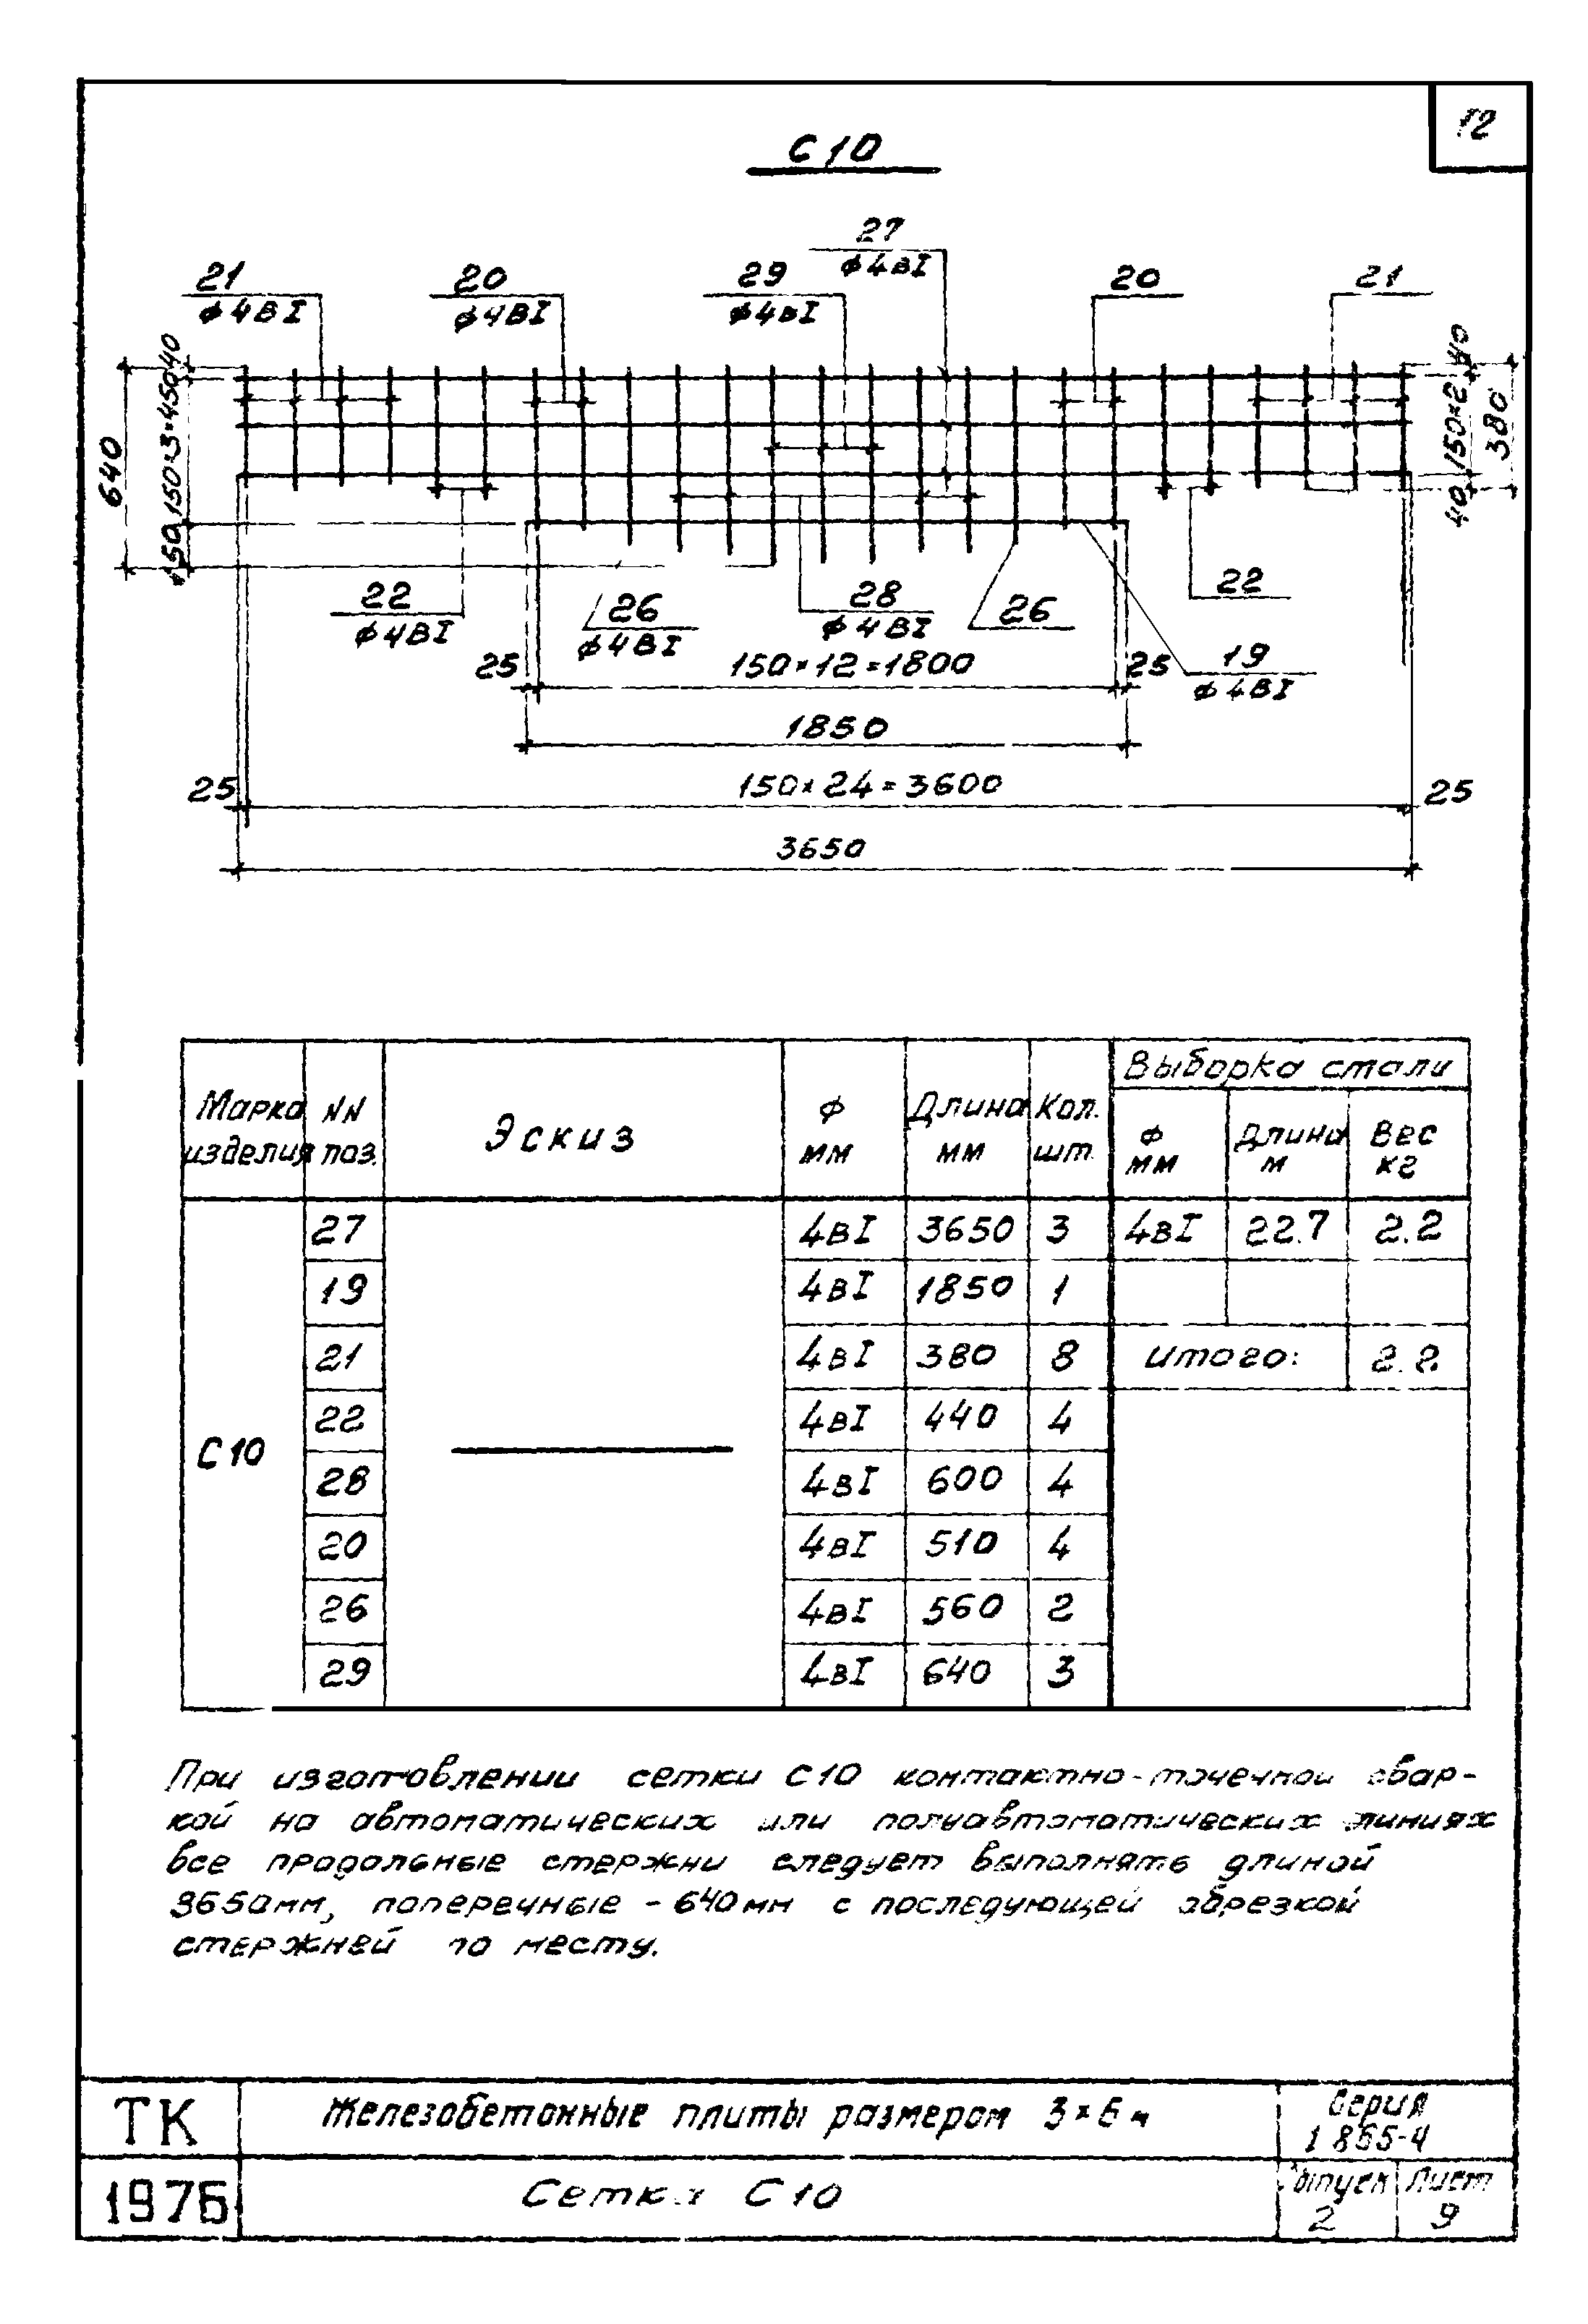 12
С10
27
ф4вI
21
ф4ВI
20
ф4ВI
29
ф4вI
20
21
640
150, 150×3=450 40
40 150×2 40
380
22
ф4ВI
26
ф4ВI
28
ф4ВI
26
22
19
ф4ВI
25 150×12=1800 25
1850
25 150×24=3600 25
3650
Марка изделия NN поз. Эскиз ф мм Длина мм Кол. шт. Выборка стали
ф мм Длина м Вес кг
С10
27 4вI 3650 3 4вI 22.7 2.2
19 4вI 1850 1
21 4вI 380 8 Итого: 2.2
22 4вI 440 4
28 4вI 600 4
20 4вI 510 4
26 4вI 560 2
29 4вI 640 3
При изготовлении сетки С10 контактно-точечной свар-
кой на автоматических или полуавтоматических линиях
все продольные стержни следует выполнять длиной
3650мм, поперечные - 640мм с последующей обрезкой
стержней по месту.
ТК Железобетонные плиты размером 3×6м Серия
1976 Сетка С10 Выпуск 2 Лист 9